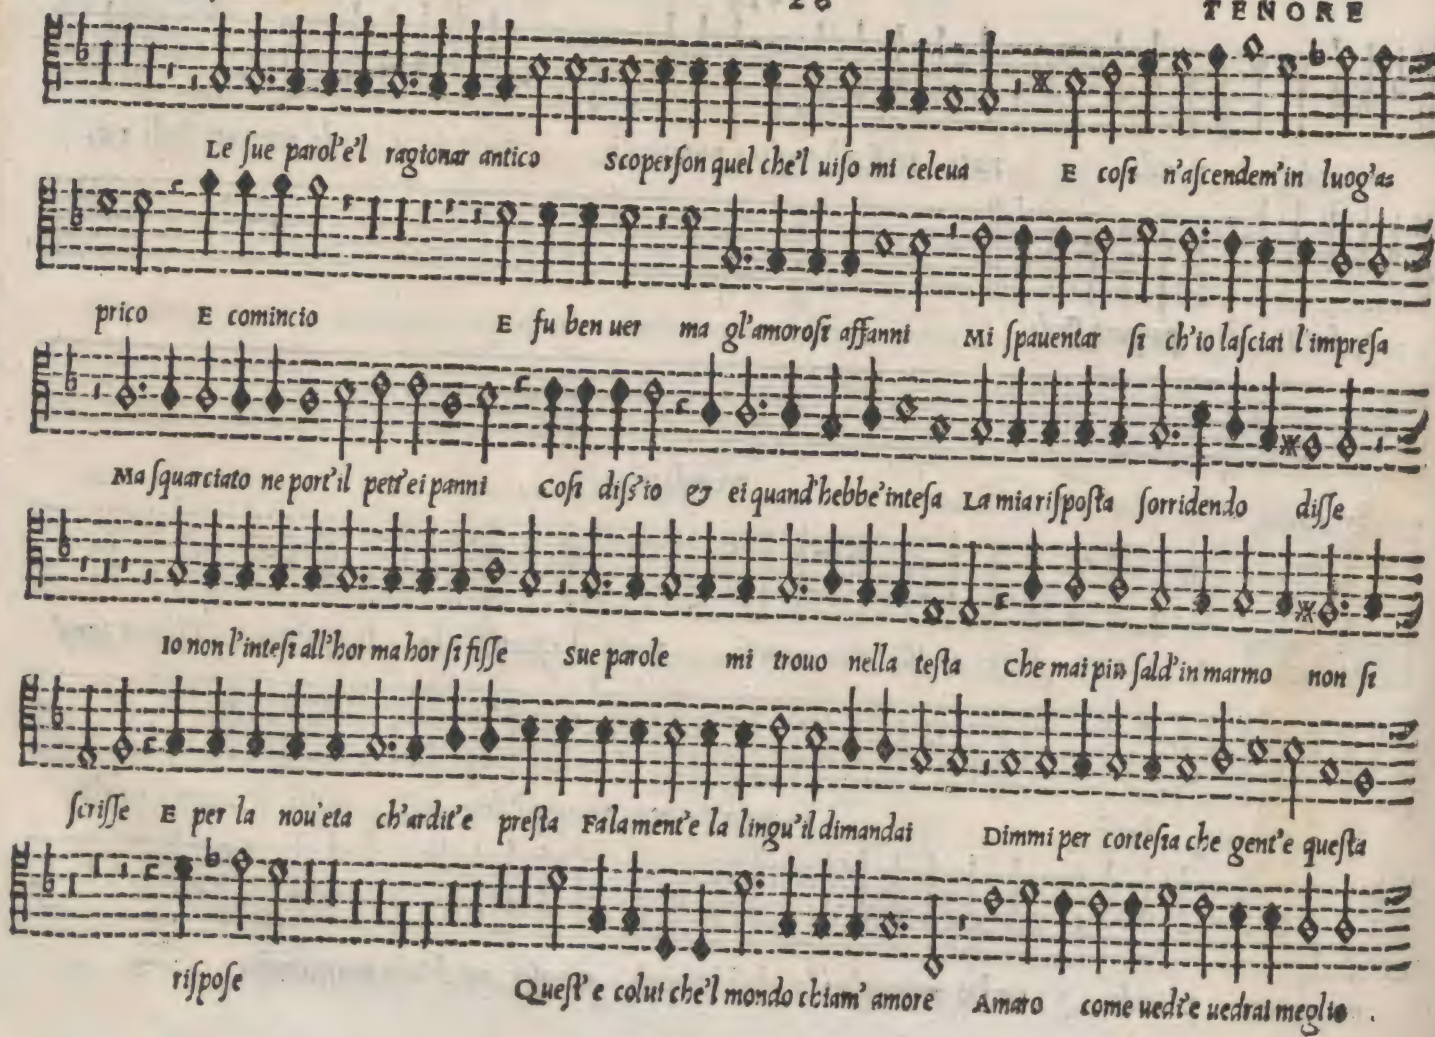 TENORE
Le ſue parol'e'l ragionar antico ſcoperſon quel che'l uiſo mi celeua E coſi n'aſcendem'in luog'a=
prico E comincio E fu ben uer ma gl'amoroſi affanni Mi ſpauentar ſi ch'io laſciai l'impreſa
Ma ſquarciato ne port'il pett'ei panni Coſi diſs'io & ei quand'hebbe'inteſa La mia riſpoſta ſorridendo diſſe
Io non l'inteſi all'hor ma hor ſi fiſſe Sue parole mi trouo nella teſta Che mai piu ſald'in marmo non ſi
ſcriſſe E per la nou'eta ch'ardit'e preſta Fa la ment'e la lingu'il dimandai Dimmi per corteſia che gent'e queſta
riſpoſe Queſt'e colui che'l mondo chiam'amore Amaro come uedi'e uedrai meglio .